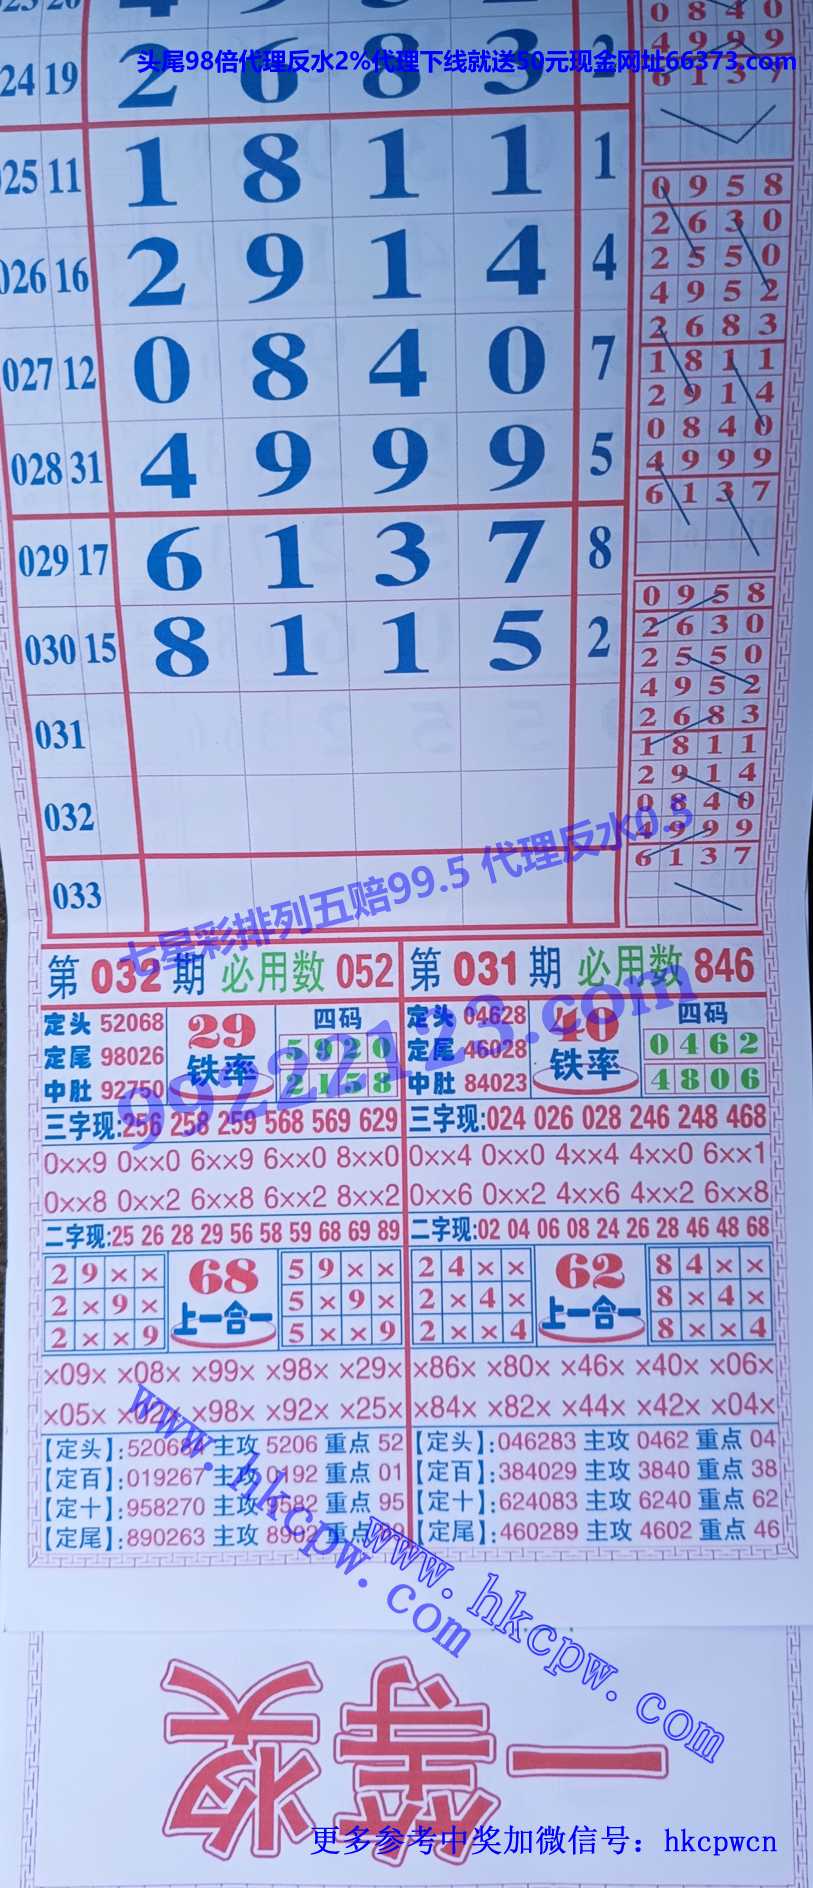 0 8 4 0
头尾98倍代理反水2%代理下线就送50元现金网址66373.com
4 9 9 9
024 19 2 6 8 3 2
6 1 3 7
025 11 1 8 1 1 1
026 16 2 9 1 4 4
027 12 0 8 4 0 7
028 31 4 9 9 9 5
029 17 6 1 3 7 8
030 15 8 1 1 5 2
031
032
033
0 9 5 8
2 6 3 0
2 5 5 0
4 9 5 2
2 6 8 3
1 8 1 1
2 9 1 4
0 8 4 0
4 9 9 9
6 1 3 7
0 9 5 8
2 6 3 0
2 5 5 0
4 9 5 2
2 6 8 3
1 8 1 1
2 9 1 4
0 8 4 0
4 9 9 9
6 1 3 7
七星彩排列五赔99.5 代理反水0.5
99222123.com
第032期 必用数 052
定头 52068
定尾 98026
中肚 92750
29
铁率
四码
5 9 2 0
2 1 5 8
三字现:256 258 259 568 569 629
0××9 0××0 6××9 6××0 8××0
0××8 0××2 6××8 6××2 8××2
二字现:25 26 28 29 56 58 59 68 69 89
2 9 × ×
2 × 9 ×
2 × × 9
68
上一合一
5 9 × ×
5 × 9 ×
5 × × 9
×09× ×08× ×99× ×98× ×29×
×05× ×02× ×98× ×92× ×25×
【定头】:52068 主攻 5206 重点 52
【定百】:019267 主攻 0192 重点 01
【定十】:958270 主攻 9582 重点 95
【定尾】:890263 主攻 8902 重点
第031期 必用数 846
定头 04628
定尾 46028
中肚 84023
40
铁率
四码
0 4 6 2
4 8 0 6
三字现:024 026 028 246 248 468
0××4 0××0 4××4 4××0 6××1
0××6 0××2 4××6 4××2 6××8
二字现:02 04 06 08 24 26 28 46 48 68
2 4 × ×
2 × 4 ×
2 × × 4
62
上一合一
8 4 × ×
8 × 4 ×
8 × × 4
×86× ×80× ×46× ×40× ×06×
×84× ×82× ×44× ×42× ×04×
【定头】:046283 主攻 0462 重点 04
【定百】:384029 主攻 3840 重点 38
【定十】:624083 主攻 6240 重点 62
【定尾】:460289 主攻 4602 重点 46
www.hkcpw.com
www.hkcpw.com
一等奖
更多参考中奖加微信号：hkcpwcn